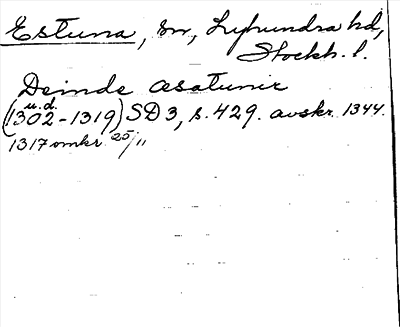 Estuna, sn, Lyhundra hd,
Stockh. l.
Deinde asatunir
u.d.
(1302-1319) SD 3, s. 429. avskr. 1344.
1317 omkr 25/11